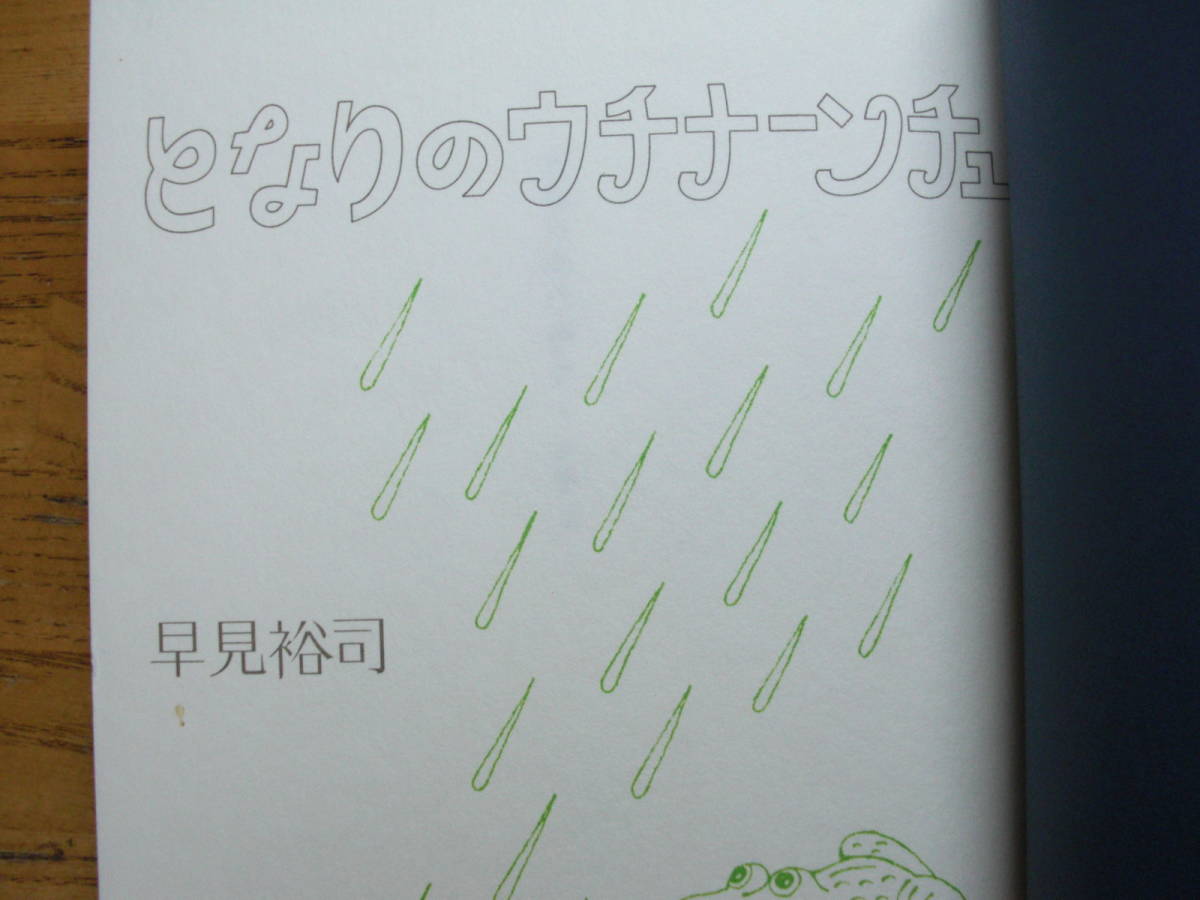 となりのウチナーンチュ
早見裕司